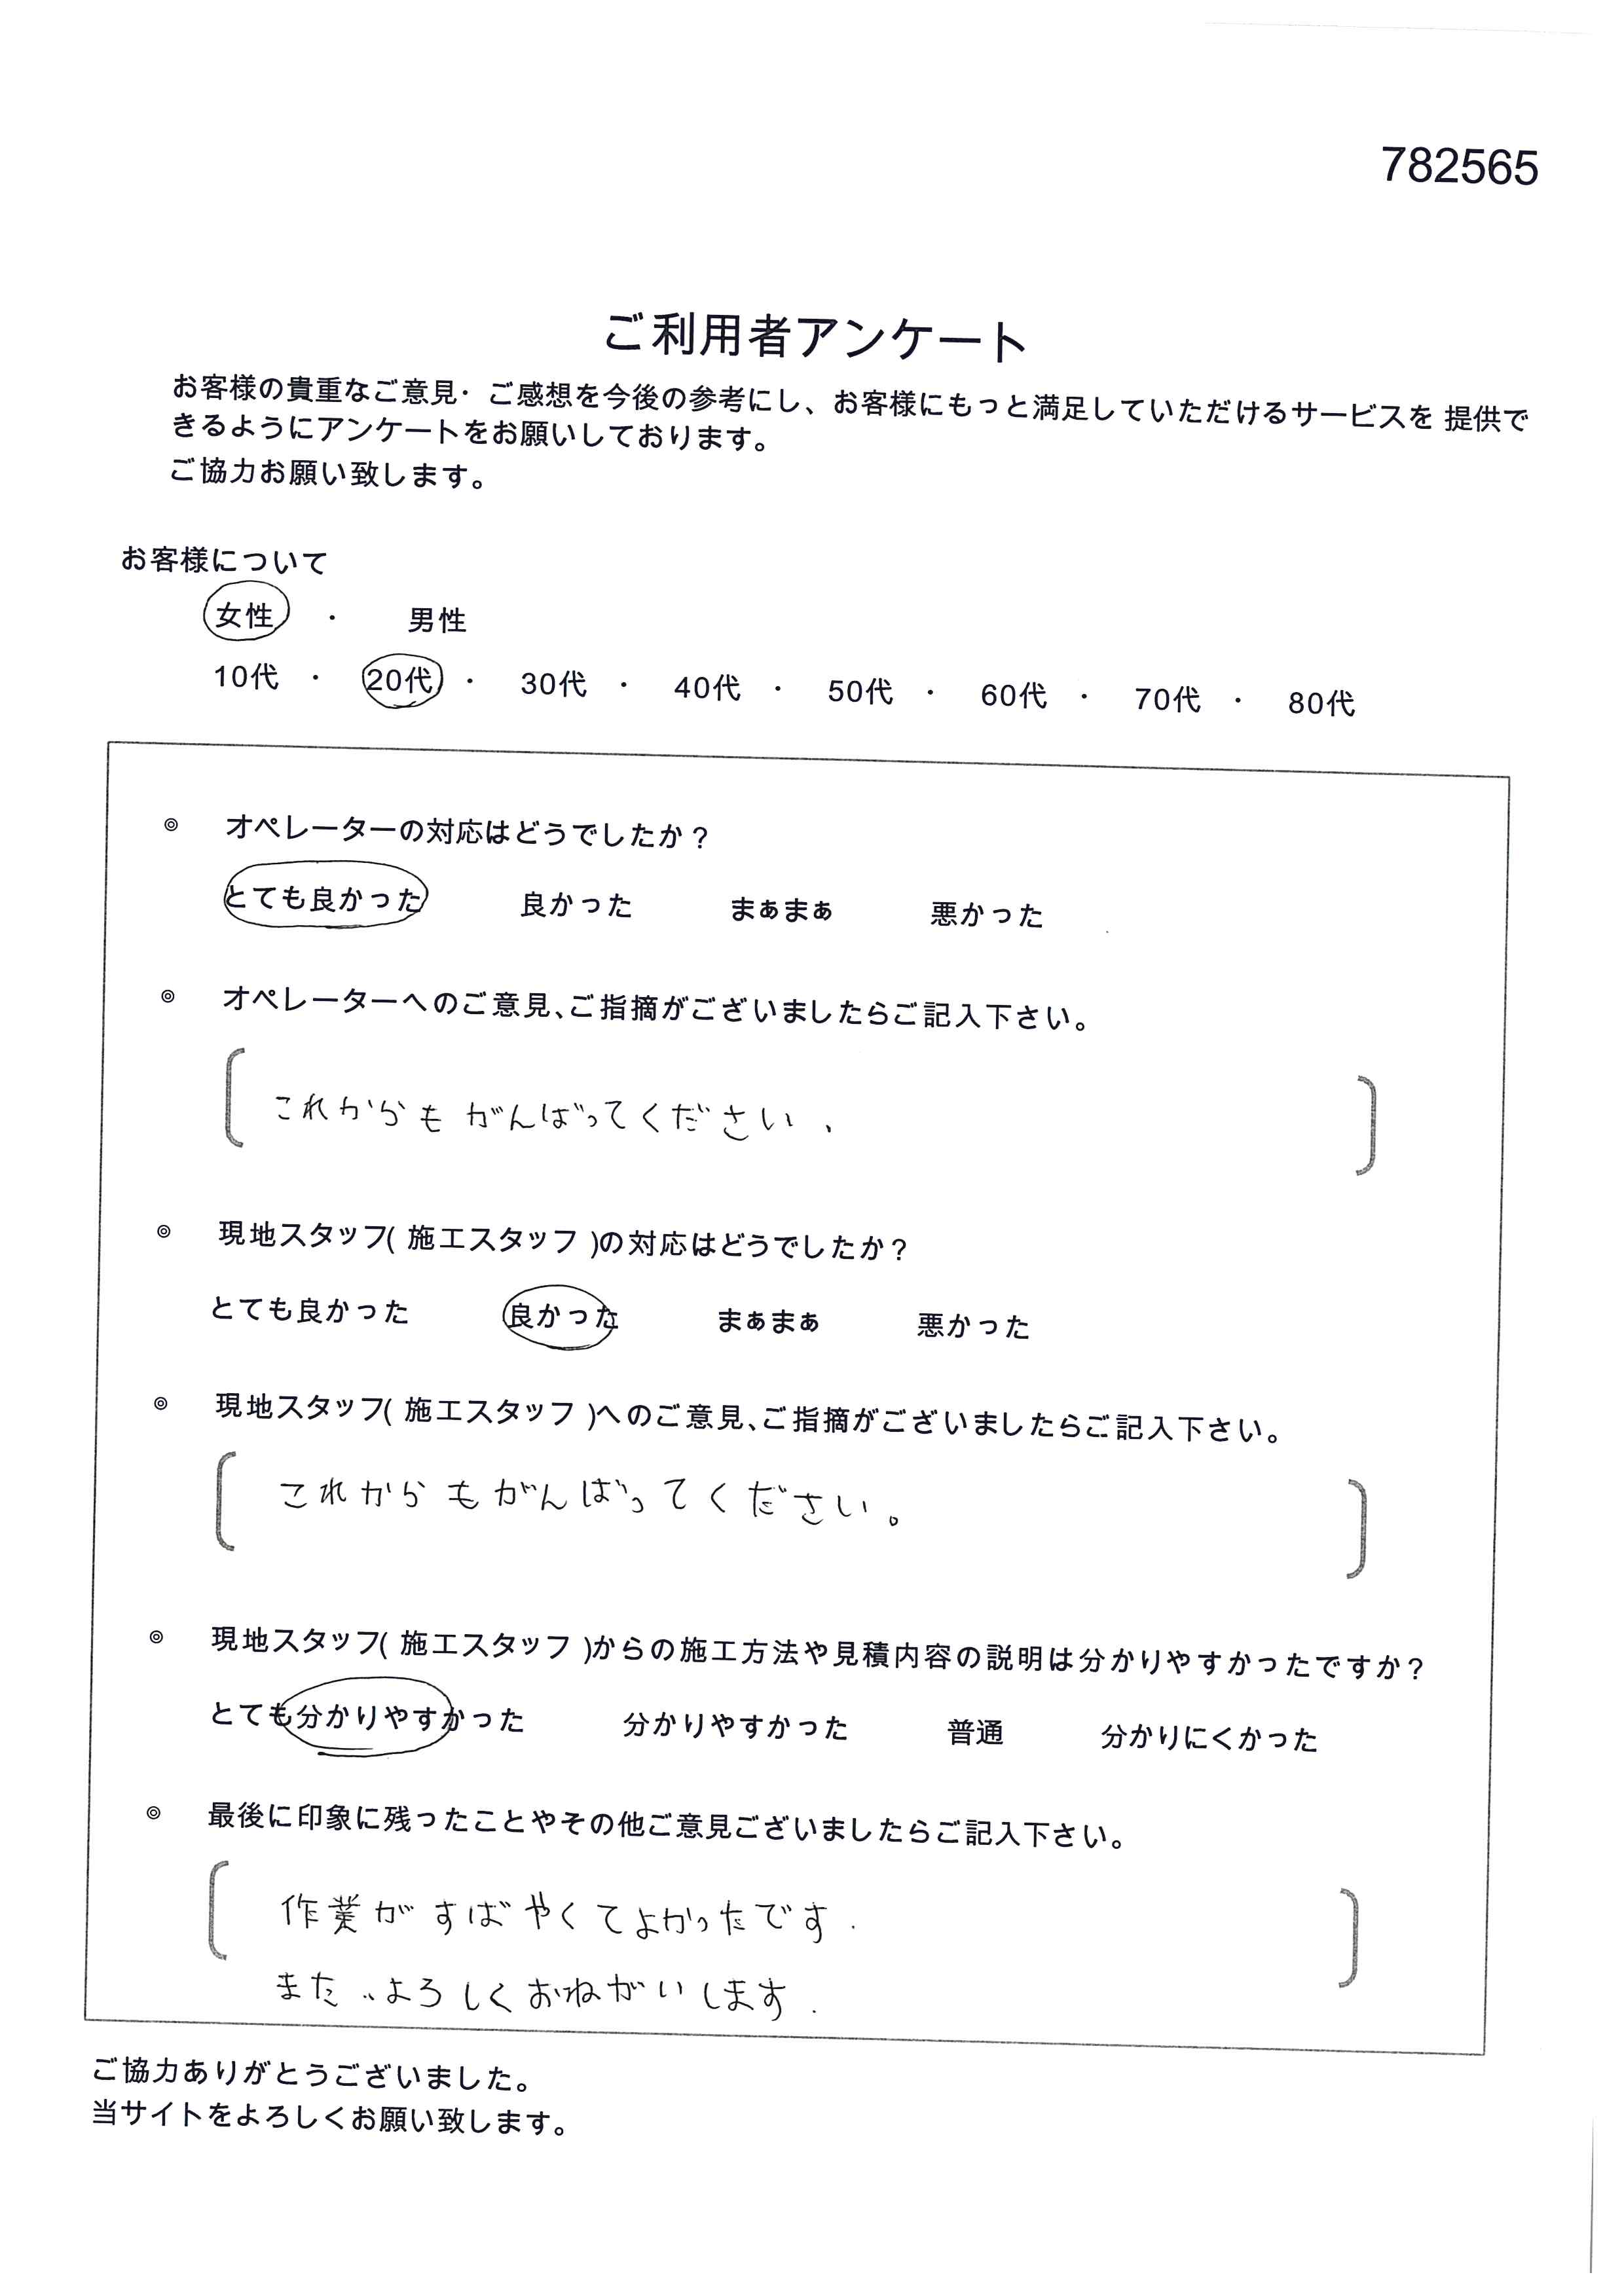 782565
ご利用者アンケート
お客様の貴重なご意見・ご感想を今後の参考にし、お客様にもっと満足していただけるサービスを 提供で
きるようにアンケートをお願いしております。
ご協力お願い致します。
お客様について
女性 ・ 男性
10代 ・ 20代 ・ 30代 ・ 40代 ・ 50代 ・ 60代 ・ 70代 ・ 80代
◎ オペレーターの対応はどうでしたか?
とても良かった 良かった まぁまぁ 悪かった
◎ オペレーターへのご意見、ご指摘がございましたらご記入下さい。
これからもがんばってください、
◎ 現地スタッフ( 施工スタッフ )の対応はどうでしたか?
とても良かった 良かった まぁまぁ 悪かった
◎ 現地スタッフ( 施工スタッフ )へのご意見、ご指摘がございましたらご記入下さい。
これからもがんばってください。
◎ 現地スタッフ( 施工スタッフ )からの施工方法や見積内容の説明は分かりやすかったですか?
とても分かりやすかった 分かりやすかった 普通 分かりにくかった
◎ 最後に印象に残ったことやその他ご意見ございましたらご記入下さい。
作業がすばやくてよかったです.
また、よろしくおねがいします.
ご協力ありがとうございました。
当サイトをよろしくお願い致します。